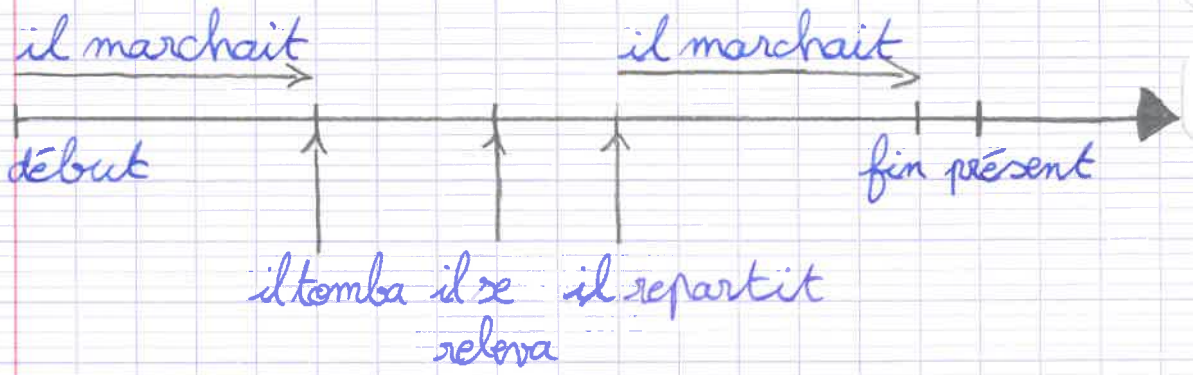 il marchait il marchait
début fin présent
il tomba il se il repartit
releva